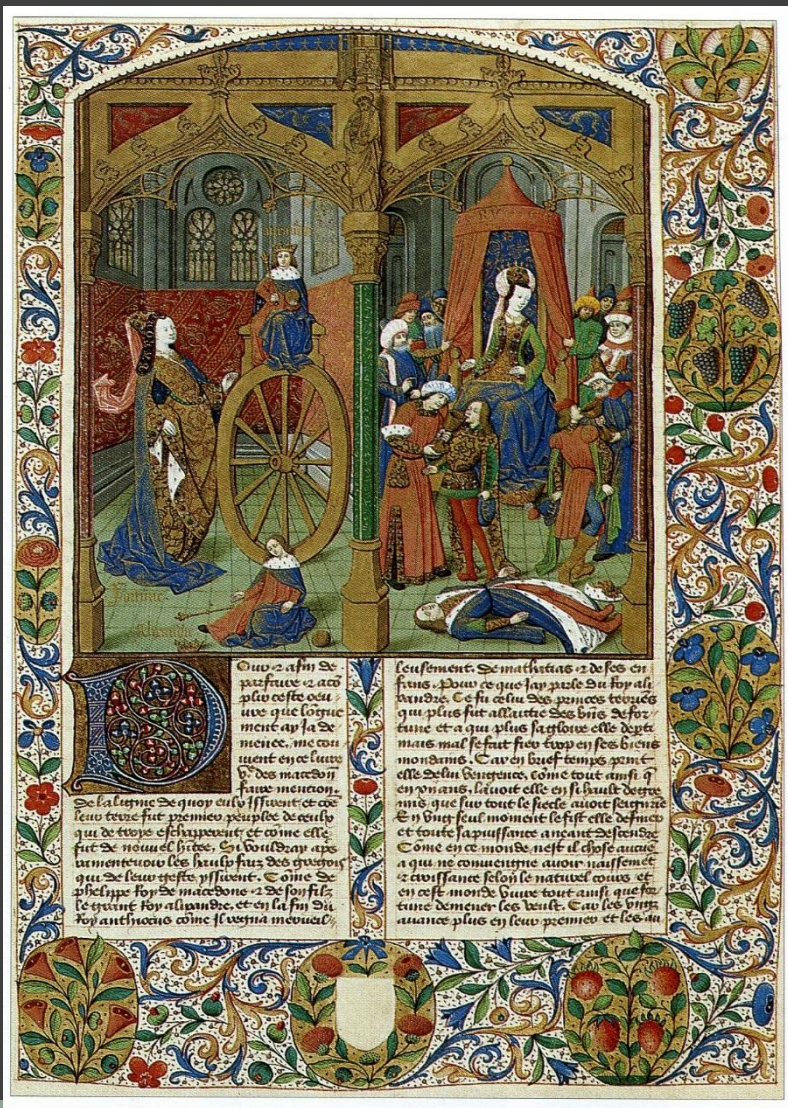 Fortune
Alixandre
Pour a afin de
parfaire a aco
plir ceste oeu
ure que longue
ment ay ia de
menee, me con
uient en ce liure
des macedon
faire mention
de la ligne de quoy eulx issirent et coe
leur terre fut premier peuplee de ceulx
qui de troye eschapperent et come elle
fut de nouuel hitee, Et vouldray aps
ramenteuoir les haulx faiz des gregois
qui de leur geste yssirent. Come de
phelippe Roy de macedone a de son filz
le grant Roy alixandre, et en la fin du
Roy anthiocus come Il regna merueil
leusement. de mathatias a de ses en
fans. Pour ce que Jay parle du Roy ali
xandre. Ce fu celui des princes terriens
qui plus fut allaictie des biens de for
tune et a qui plus sa gloire elle departi
mais mal se fait fier trop en ses biens
mondains. Car en brief temps print
elle de lui vengence, come tout ainsi q
en pou ans, lauoit elle en si hault degre
mis que sur tout le siecle auoit seignrie
En vng seul moment le fist elle definer
et toute sa puissance a neant descendre
Come en ce monde nest il chose aucune
a qui ne conuiengne auoir naissement
a croissance selon le naturel cours et
en cest monde viure tout ainsi que for
tune demener les veult. Car les vngz
auance plus en leur premier et les au